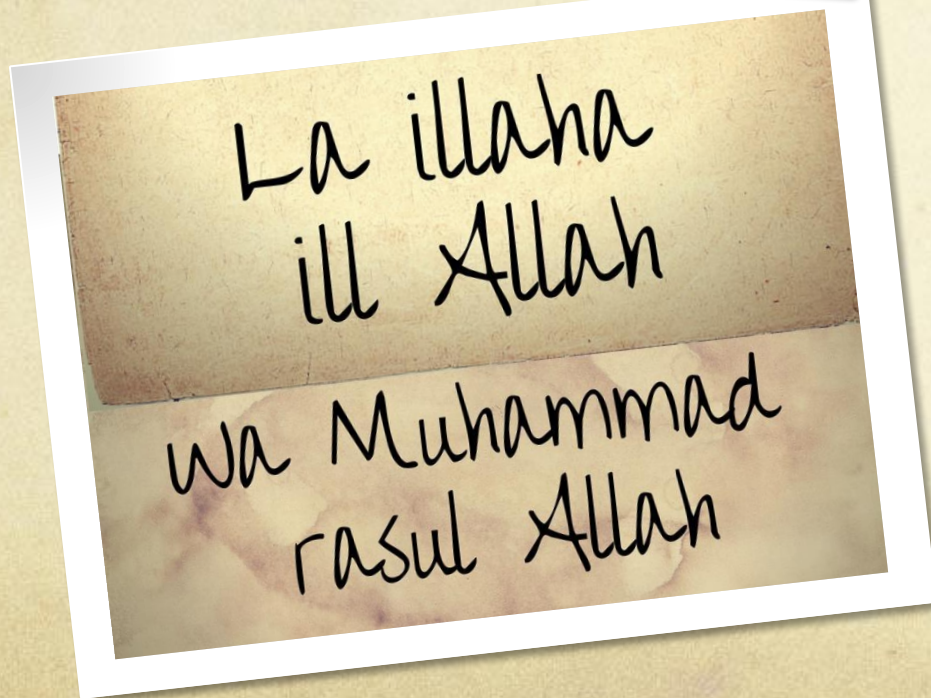 La illaha
ill Allah
wa Muhammad
rasul Allah